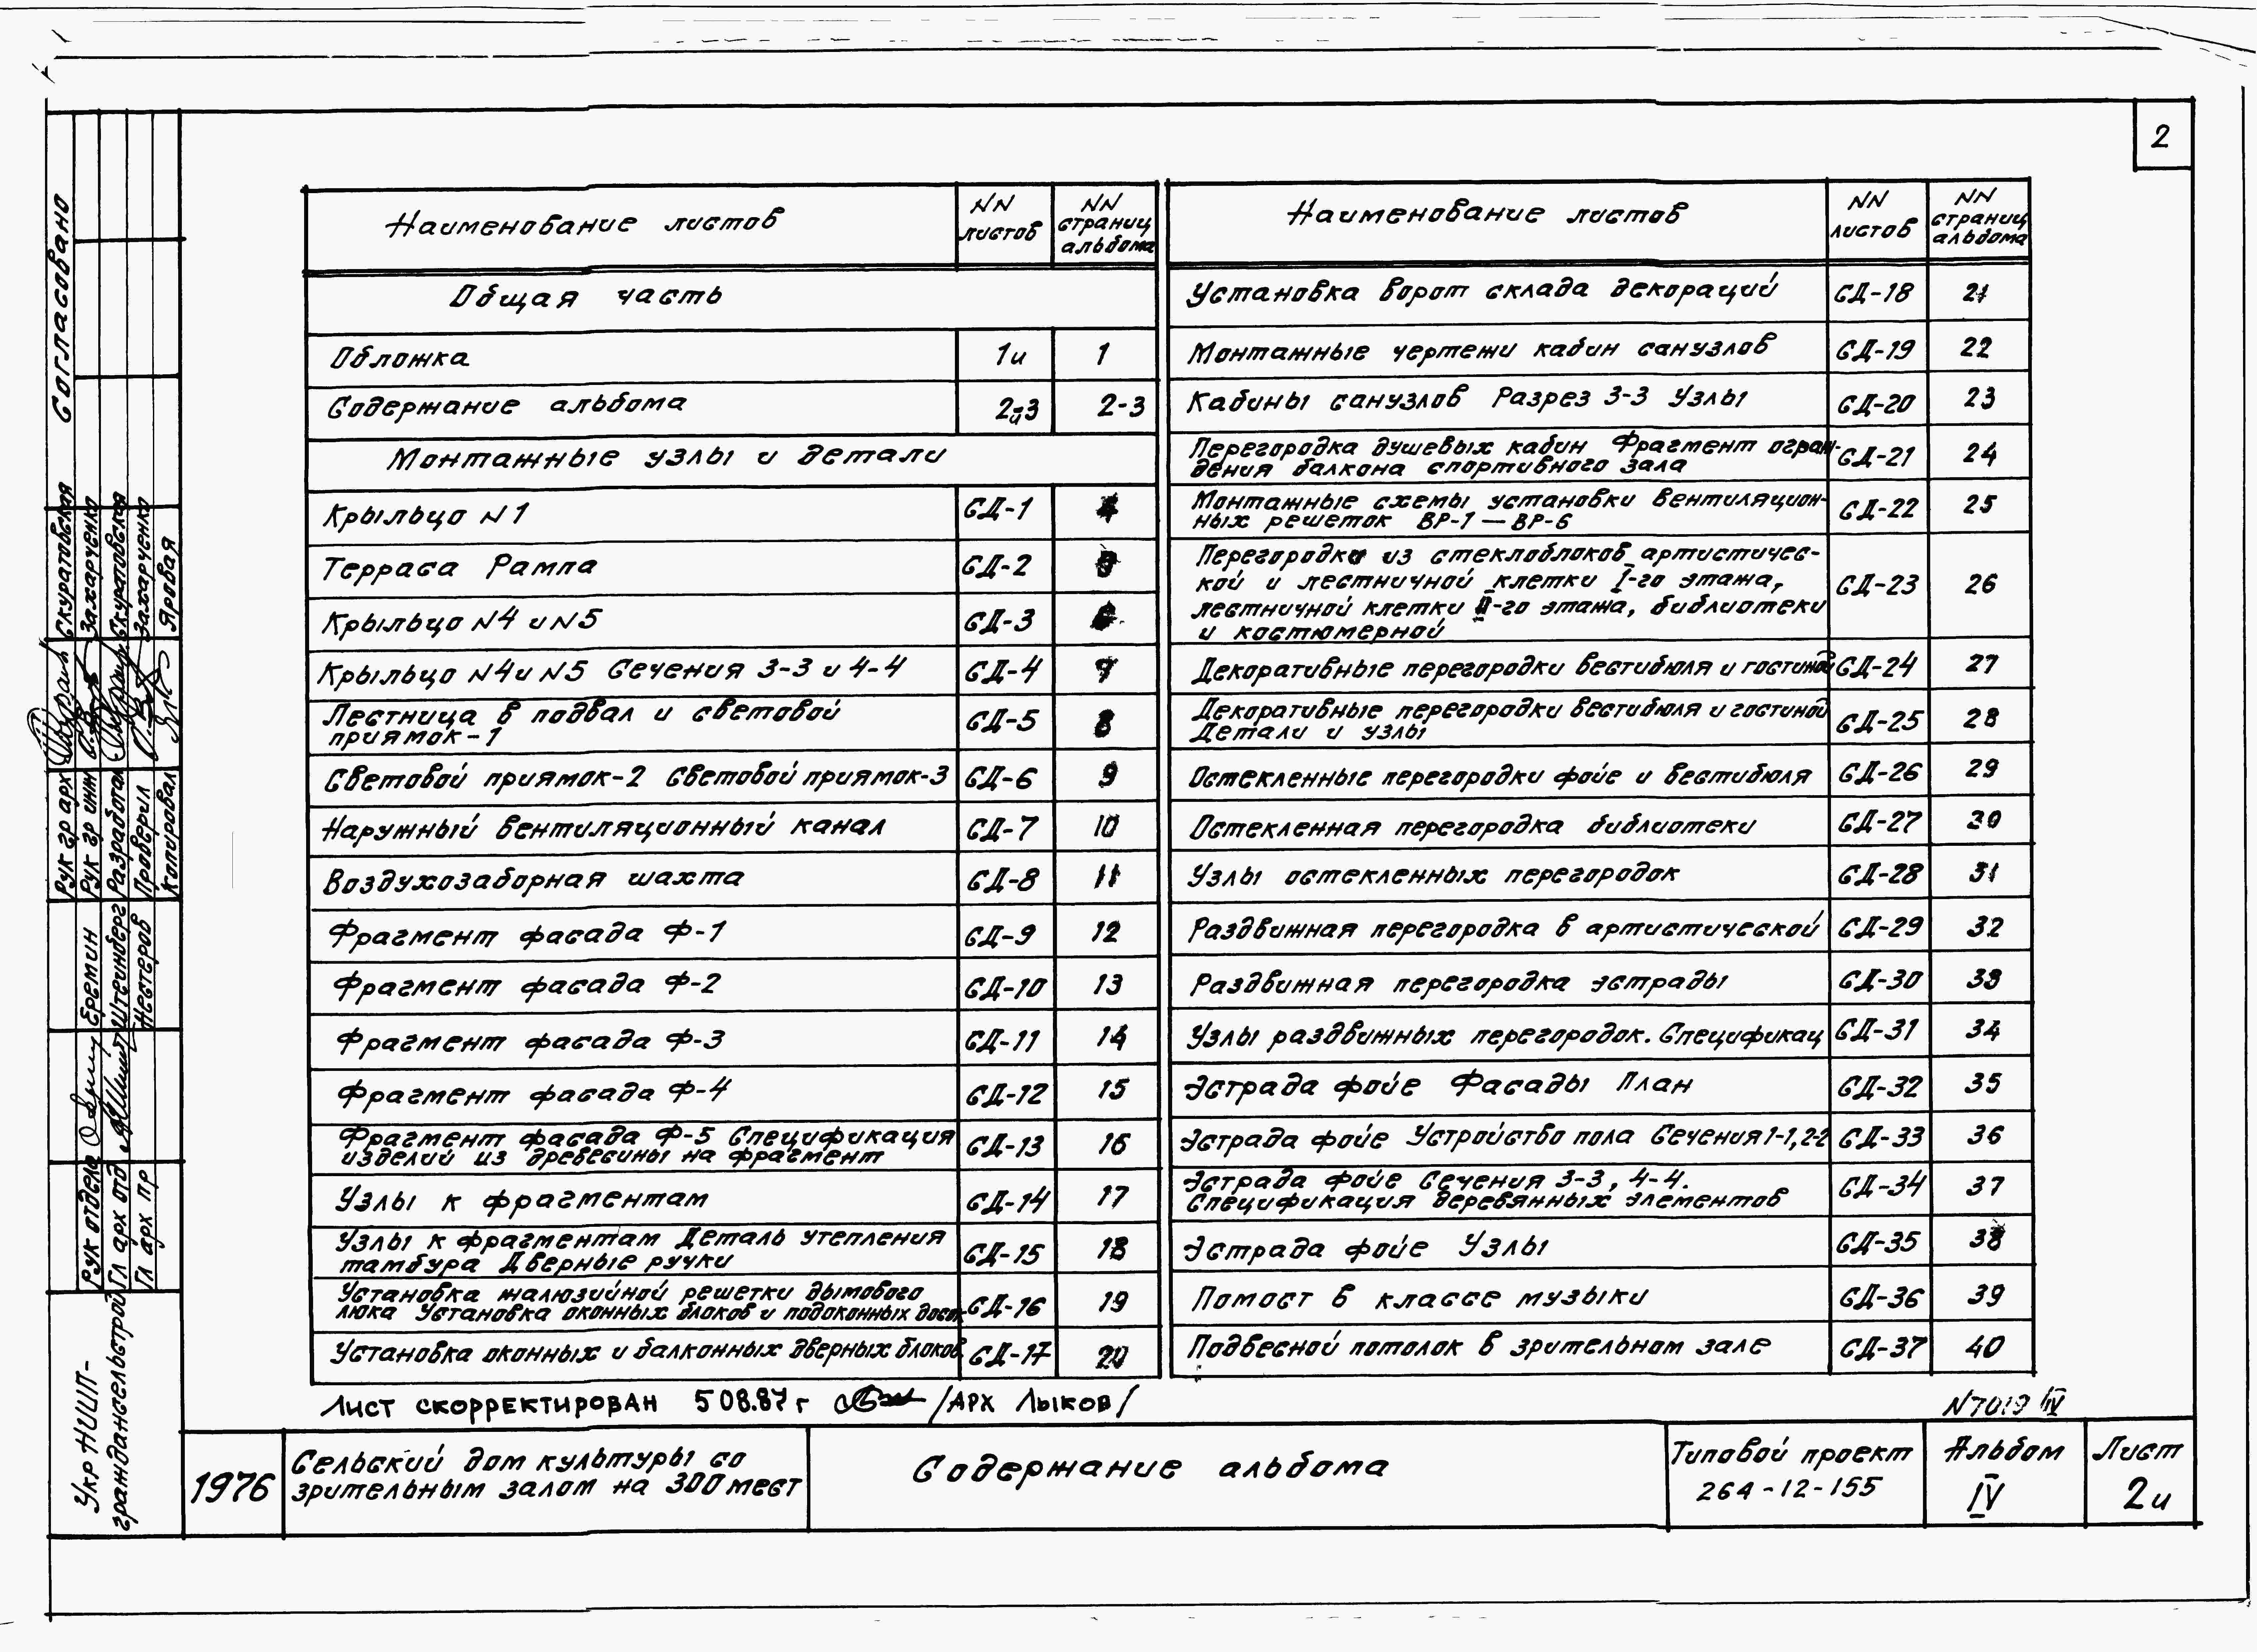 2
Наименование листов
NN листов
NN страниц альбома
Общая часть
Обложка 1и 1
Содержание альбома 2и-3 2-3
Монтажные узлы и детали
Крыльцо N1 СД-1 4
Терраса Рампа СД-2
Крыльцо N4 и N5 СД-3 6
Крыльцо N4 и N5 Сечения 3-3 и 4-4 СД-4 7
Лестница в подвал и световой
приямок-1 СД-5 8
Световой приямок-2 Световой приямок-3 СД-6 9
Наружный вентиляционный канал СД-7 10
Воздухозаборная шахта СД-8 11
Фрагмент фасада Ф-1 СД-9 12
Фрагмент фасада Ф-2 СД-10 13
Фрагмент фасада Ф-3 СД-11 14
Фрагмент фасада Ф-4 СД-12 15
Фрагмент фасада Ф-5 Спецификация
изделий из древесины на фрагмент СД-13 16
Узлы к фрагментам СД-14 17
Узлы к фрагментам Деталь утепления
тамбура Дверные ручки СД-15 18
Установка жалюзийной решетки дымового
люка Установка оконных блоков и подоконных досок СД-16 19
Установка оконных и балконных дверных блоков СД-17 20
Наименование листов
NN листов
NN страниц альбома
Установка ворот склада декораций СД-18 21
Монтажные чертежи кабин санузлов СД-19 22
Кабины санузлов Разрез 3-3 Узлы СД-20 23
Перегородка душевых кабин Фрагмент ограж-
дения балкона спортивного зала СД-21 24
Монтажные схемы установки вентиляцион-
ных решеток ВР-1 — ВР-6 СД-22 25
Перегородки из стеклоблоков артистичес-
кой и лестничной клетки I-го этажа,
лестничной клетки II-го этажа, библиотеки
и костюмерной СД-23 26
Декоративные перегородки вестибюля и гостиной СД-24 27
Декоративные перегородки вестибюля и гостиной
Детали и узлы СД-25 28
Остекленные перегородки фойе и вестибюля СД-26 29
Остекленная перегородка библиотеки СД-27 30
Узлы остекленных перегородок СД-28 31
Раздвижная перегородка в артистической СД-29 32
Раздвижная перегородка эстрады СД-30 33
Узлы раздвижных перегородок. Спецификац СД-31 34
Эстрада фойе Фасады План СД-32 35
Эстрада фойе Устройство пола Сечения 1-1, 2-2 СД-33 36
Эстрада фойе Сечения 3-3, 4-4.
Спецификация деревянных элементов СД-34 37
Эстрада фойе Узлы СД-35 38
Помост в классе музыки СД-36 39
Подвесной потолок в зрительном зале СД-37 40
Лист скорректирован 5 08.87 г /Арх Лыков/
N7019 IV
1976
Сельский дом культуры со
зрительным залом на 300 мест
Содержание альбома
Типовой проект
264-12-155
Альбом
IV
Лист
2и
Согласовано
Рук гр арх Скуратовская
Рук гр инж Захарченко
Разработал Скуратовская
Проверил Захарченко
Копировал Яровая
Рук отдела Еремин
Гл арх отд Штейнберг
Гл арх пр Нестеров
Укр НИИП-
граждансельстрой